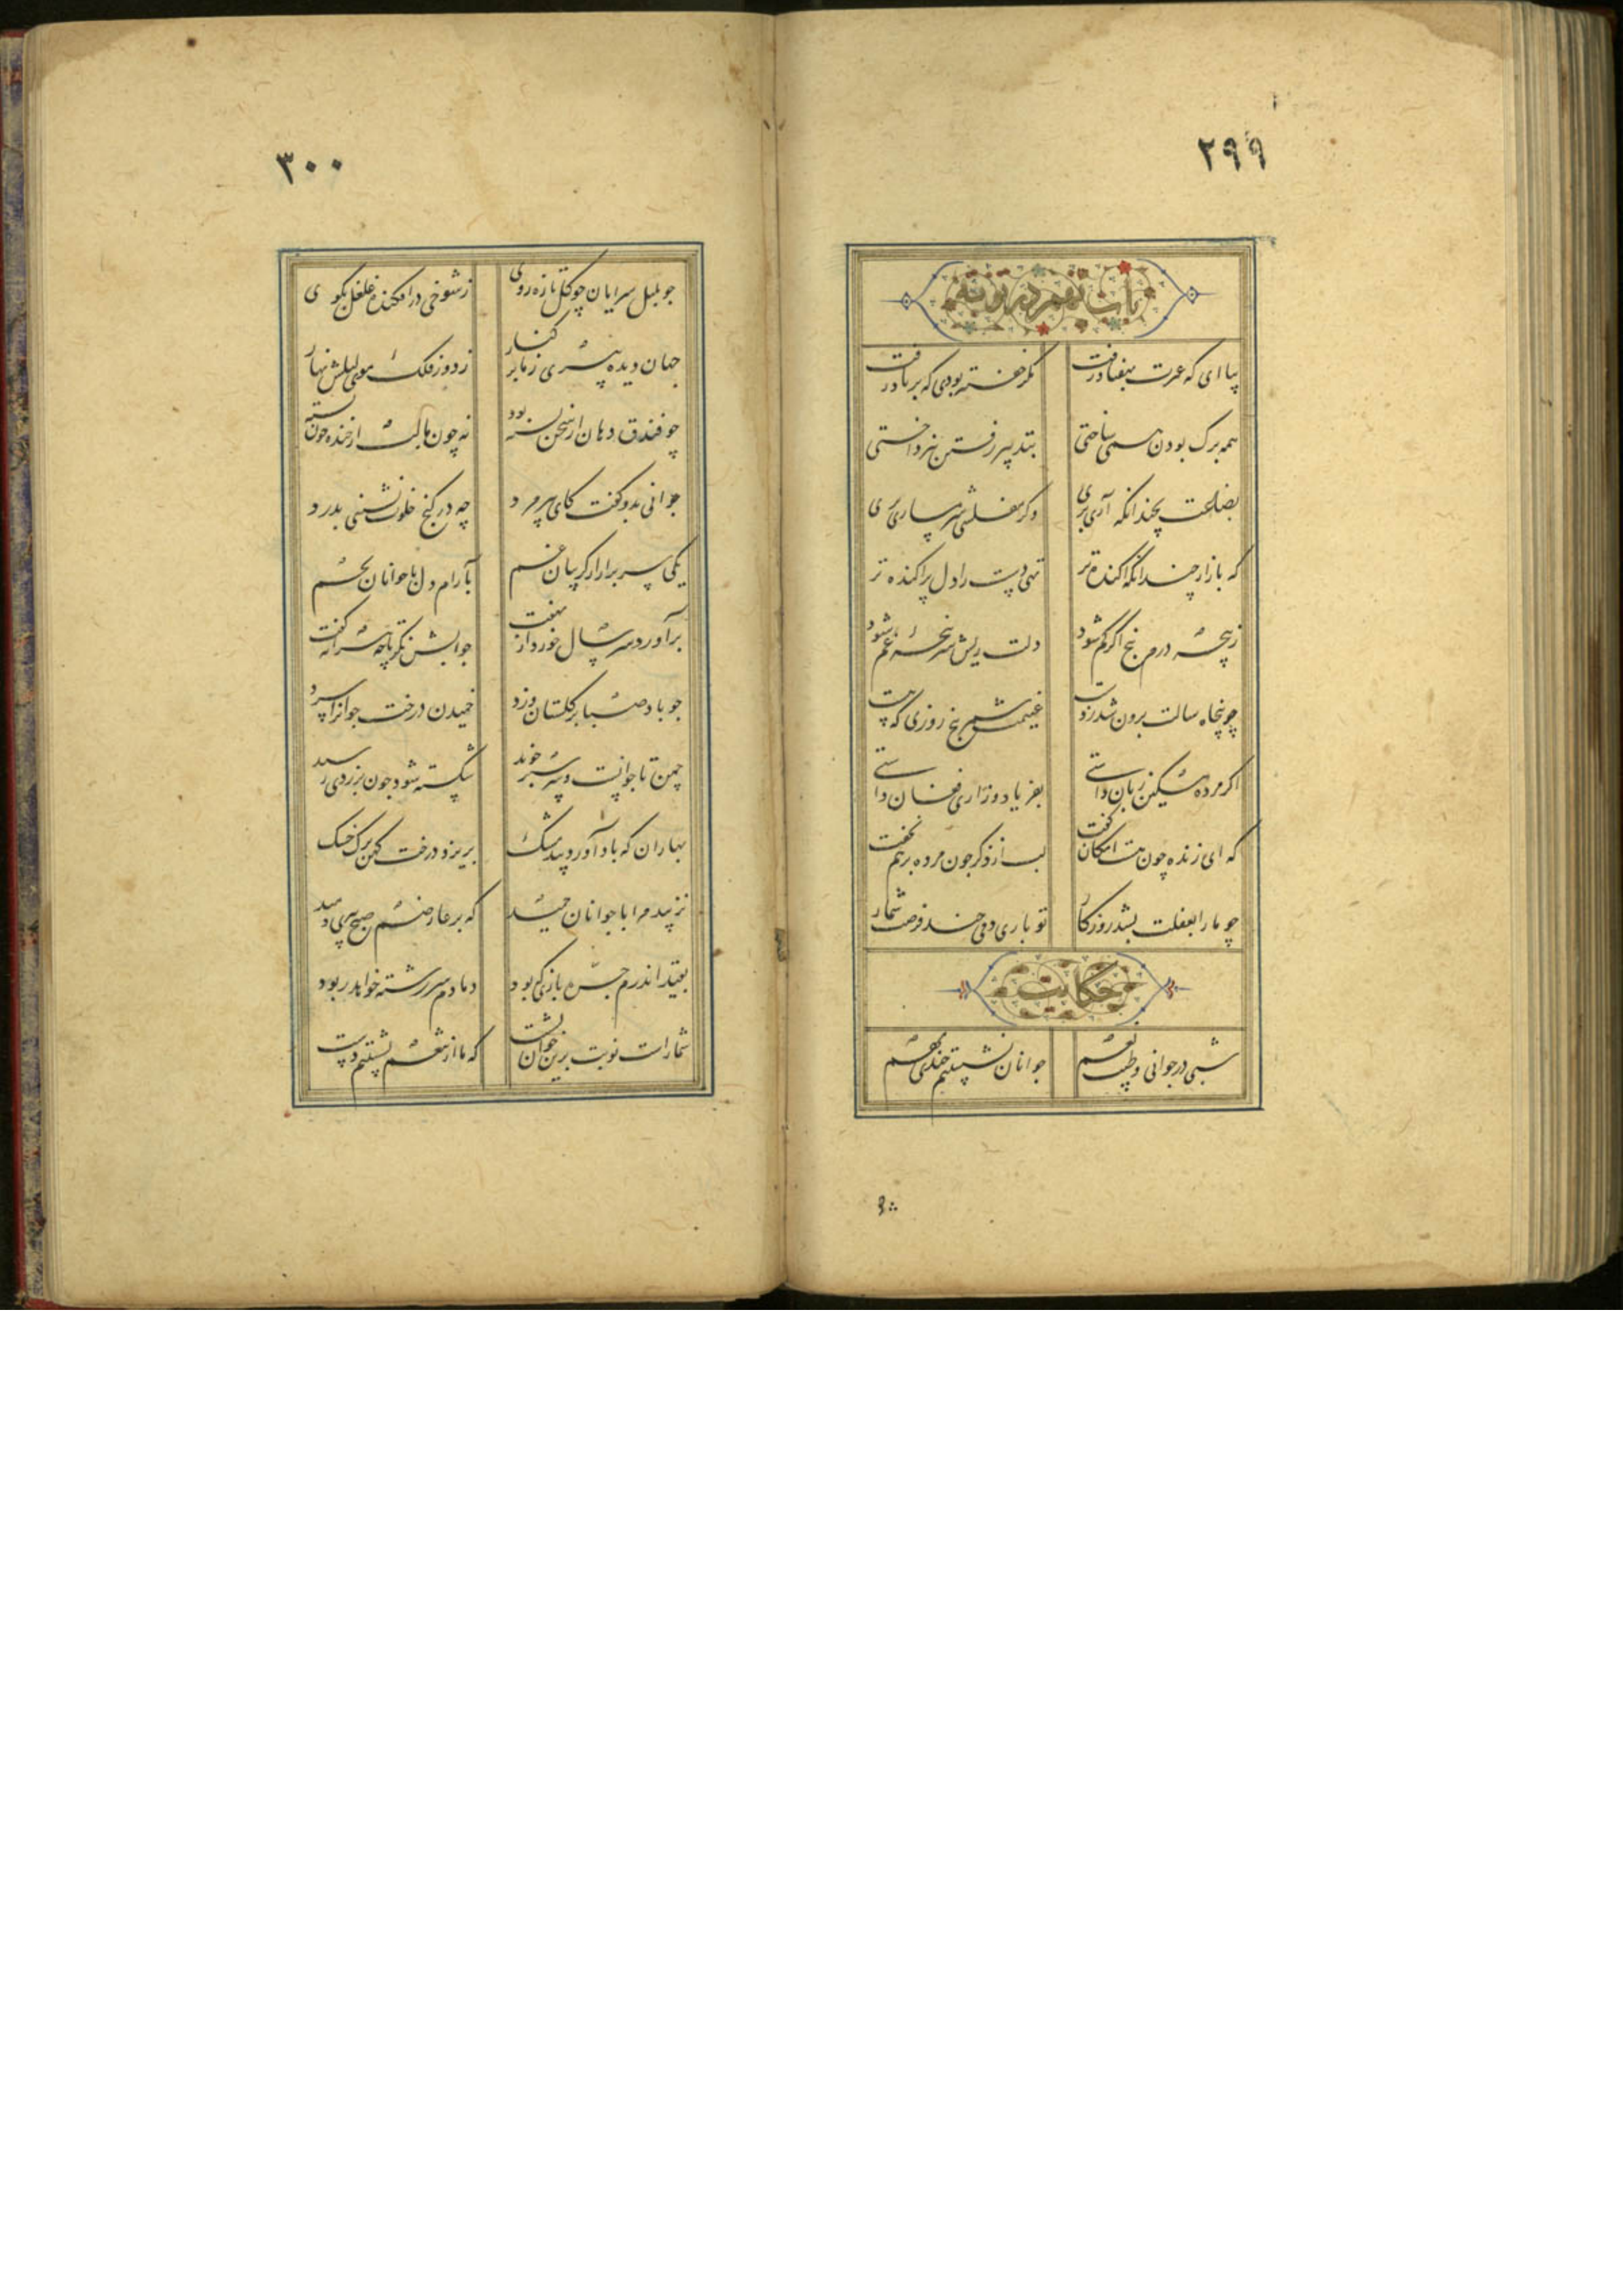 ۲۹۹
باب نهم در توبه
بیا ای که عمرت بهفتاد رفت مگر خفته بودی که بر باد رفت
همه برک بودن همی ساختی بتدبیر رفتن نپرداختی
بضاعت بچندانکه آری بری وکر مفلسی شرمساری بری
که بازار چندانکه آکنده‌تر تهی دست را دل پراکنده تر
ز پنجه درم پنج اگر کم شود دلت ریش سرپنجهٔ غم شود
چو پنجاه سالت برون شد ز دست غنیمت شمر پنج روزی که هست
اگر مرده مسکین زبان داشتی بفریاد و زاری فغان داشتی
که ای زنده چون هست امکان گفت لب از ذکر چون مرده بر هم نخفت
چو ما را بغفلت بشد روزکار تو باری دمی چند فرصت شمار
حکایت
شبی در جوانی و طیب نعم جوانان نشستیم چندی بهم
۳۰۰
چو بلبل سرایان چو گل تازه روی ز شوخی درافکنده غلغل بکوی
جهان دیده پیری ز ما بر کنار ز دور فلک لیل مویش نهار
چو فندق دهان از سخن بسته بود نه چون ما لب از خنده چون پسته بود
جوانی بدو گفت کای پیر مرد چه در کنج خلوت نشینی بدرد
یکی سر برار از گریبان غم بآرام دل با جوانان بچم
برآورد سر سال خورد از نهفت جوابش نگر تا چه پیرانه گفت
چو باد صبا بر گلستان وزد چمیدن درخت جوانرا سزد
چمد تا جوانست و سر سبز خوید شکسته شود چون بزردی رسید
بهاران که باد آورد بید مشک بریزد درخت کهن برک خشک
نزیبد مرا با جوانان چمید که بر عارضم صبح پیری دمید
بقید اندرم جره بازی که بود دمادم سر رشته خواهد ربود
شماراست نوبت برین خوان نشست که ما از تنعم بشستیم دست